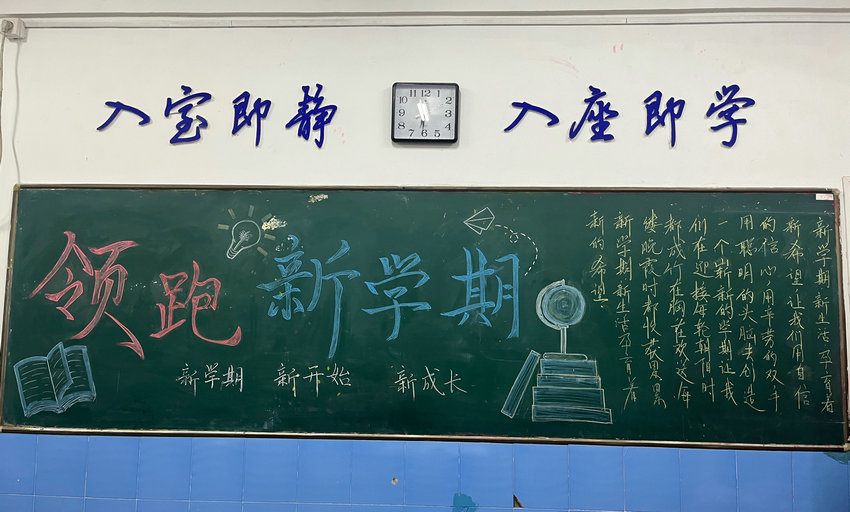 入室即静 入座即学
11 12 1
10 2
9 3
8 4
7 6 5
领跑 新学期
新学期 新开始 新成长
新学期新生活孕育着
新希望让我们用自信
的信心用辛劳的双手
用聪明的头脑共创造
一个崭新的学期让我
们在迎接每轮朝阳时
都成竹在胸在送每
缕晚霞时都收获累累
新学期新生活孕育着
新的希望